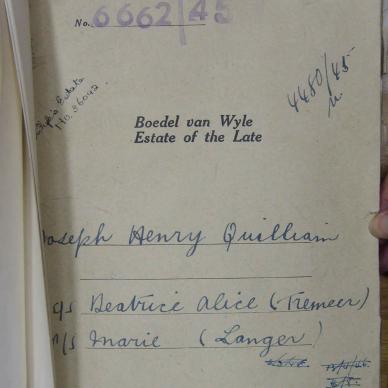 No. 6662/45
No. 86042
4480/45
Boedel van Wyle
Estate of the Late
Joseph Henry Quilliam
p/s Beatrice Alice (Tremeer)
n/s Marie (Langer)